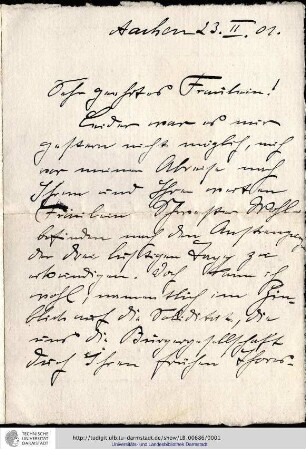 Aachen 23. II. 01.
Sehr geehrtes Fräulein!
Leider war es mir
gestern nicht möglich, mich
vor meiner Abreise nach
Ihrem und Ihrer werten
Fräulein Schwester Wohl-
befinden nach den Anstrengungen
der drei lustigen Tage zu
erkundigen. Doch kann ich
wohl, namentlich im Hin-
blick auf die Solidität, die
uns die Bürgergesellschaft
durch Ihren frühen Thores-
TECHNISCHE
UNIVERSITÄT
DARMSTADT
http://tudigit.ulb.tu-darmstadt.de/show/LB_00636/0001
Universitäts- und Landesbibliothek Darmstadt